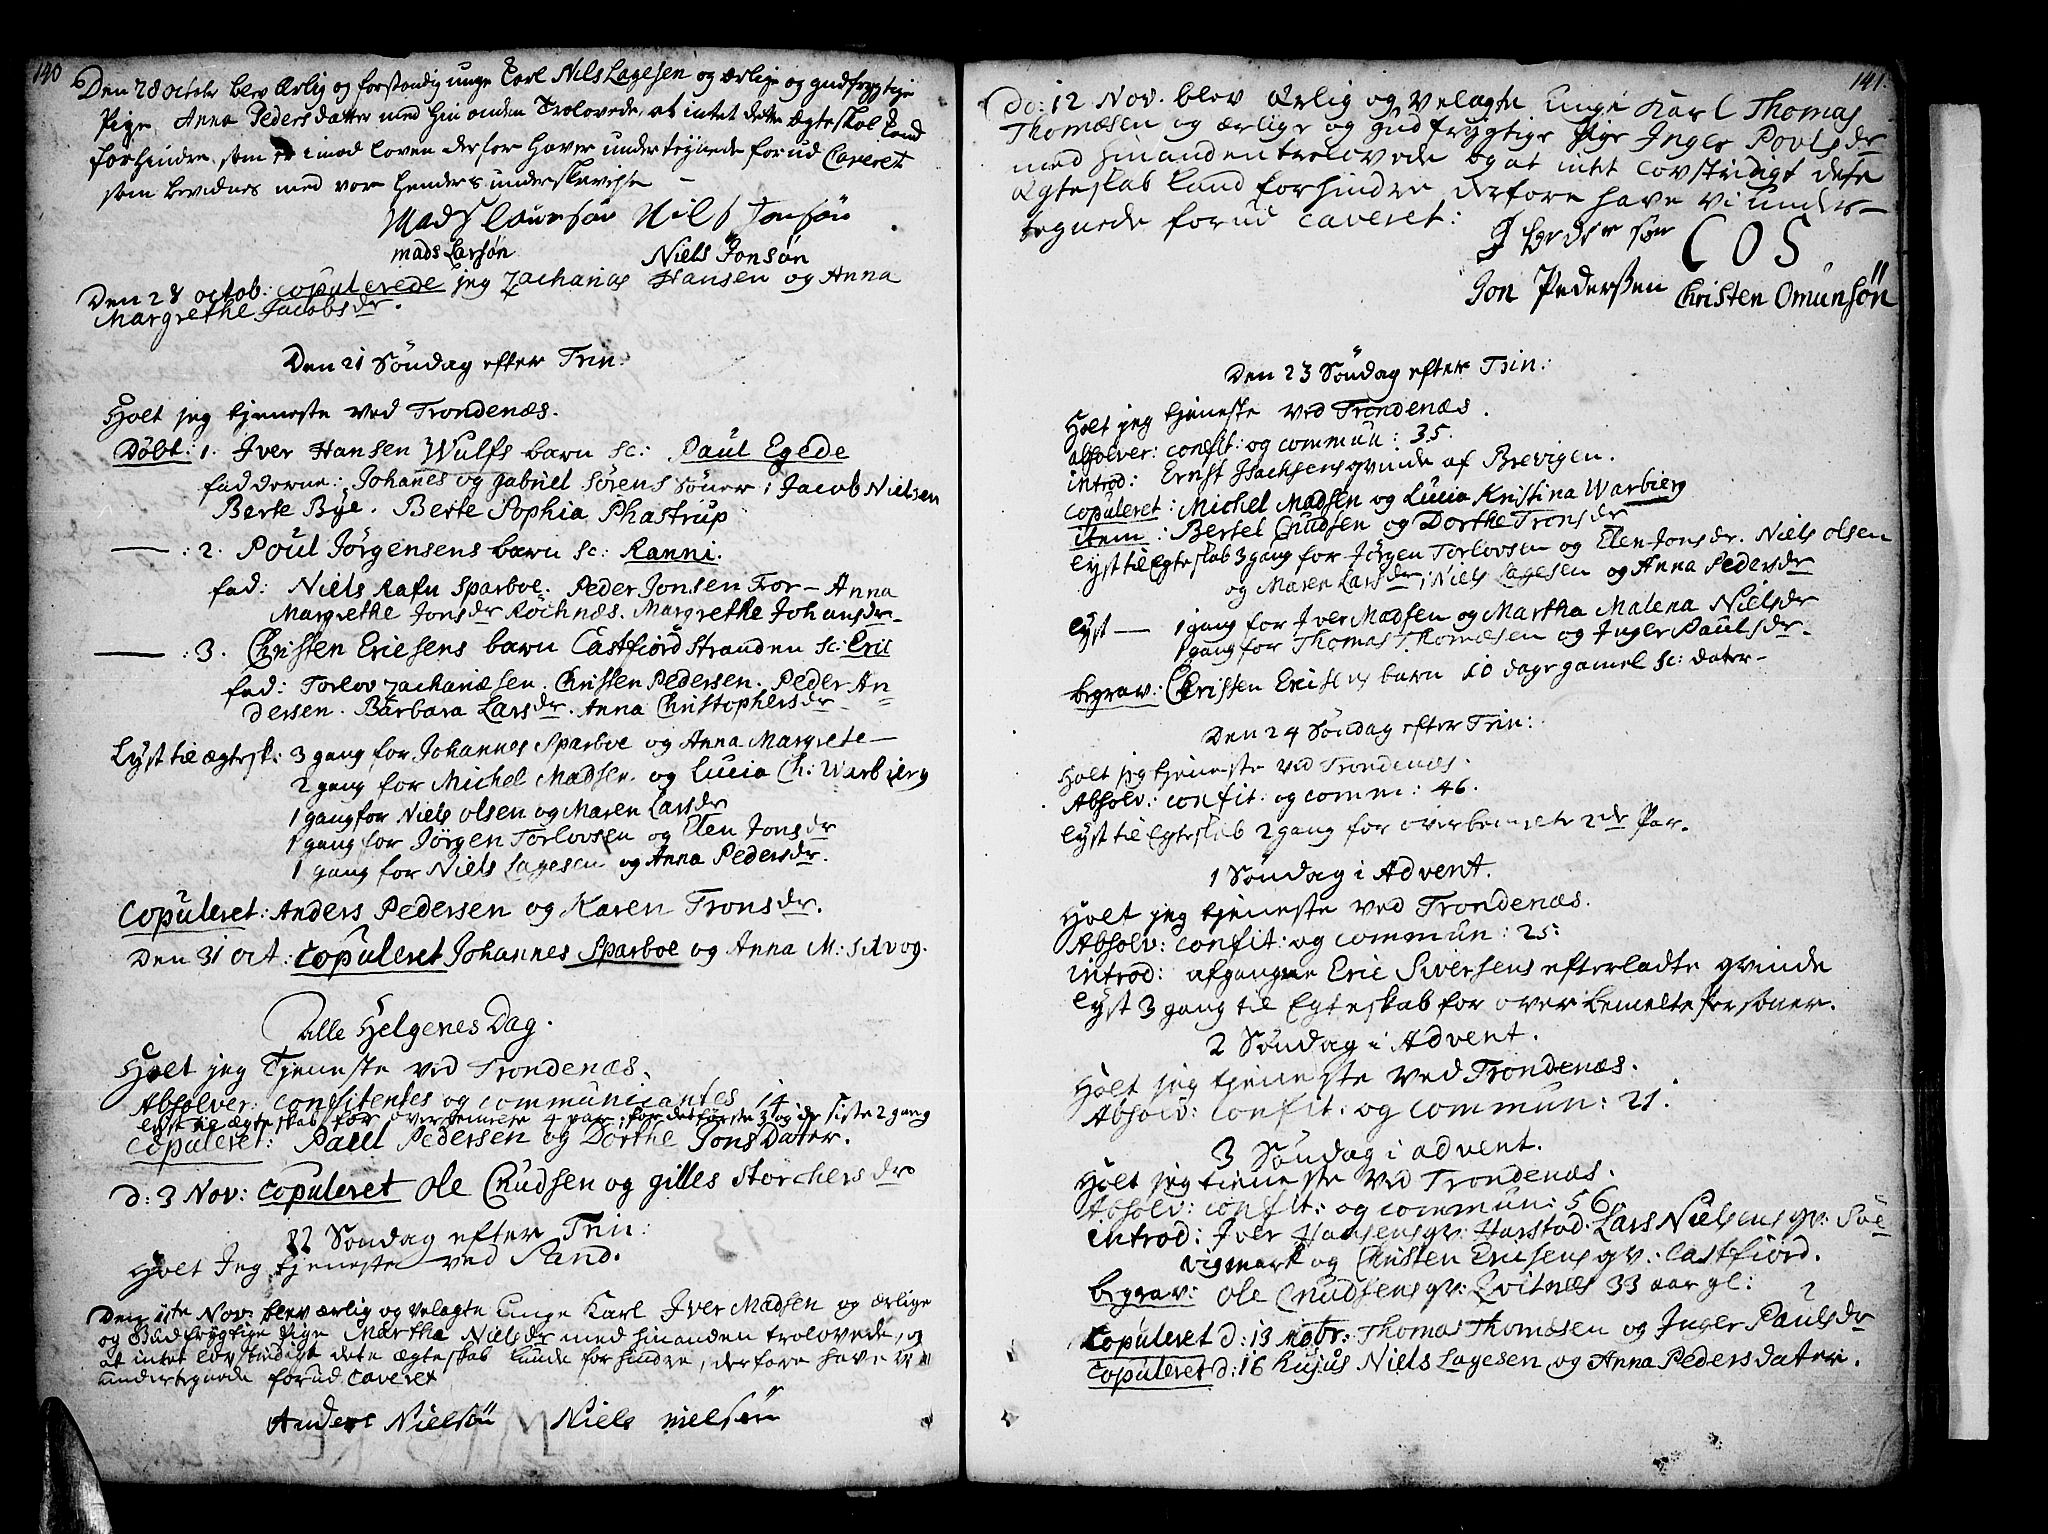 140
Den 28 octobr blev Ærlig og forstandig unge Carl Nils Lagesen og ærlige og gudfrygtige
Pige Anna Pedersdatter med hin anden Trolovede, at intet dette Ægteskab kand
forhindre som er imod loven derfor haver undertegnede forud Caveret
som bevidnes med vor henders underskrivelse -
Mads Laursøn Nils Jonsøn
mads Larsøn Niels Jonsøn
Den 28 octob: copulerede jeg Zacharias Hansen og Anna
Margrethe Jacobsdr.
Den 21 Søndag efter Trin:
Holt jeg tjeneste ved Trondenæs.
Døbt: 1. Iver Hansen Wulfs barn sc: Paul Egede
fadderne: Johanes og gabriel Sørens Søner; Jacob Nielsen
Berte Bÿe. Berte Sophia Phastrup
—— : 2. Poul Jörgensens barn sc: Ranni.
fad: Niels Rafn Sparboe. Peder Jonsen Tor— Anna
Margrethe Jonsdr Röchnæs. Margrethe Johansdr.
—— : 3. Christen Ericsens barn Castfiord Stranden sc: Eric
fad: Torlov Zachariæsen. Christen Pedersen. Peder An=
dersen. Barbara Larsdr. Anna Christophersdr.
Lyst til ægtesk: 3 gang for Johannes Sparboe og Anna Margrete—
2 gang for Michel Madsen og Lucia Ch: Warbierg
1 gang for Niels Olsen og Maren Larsdr
1 gang for Jörgen Torlovsen og Elen Jonsdr
1 gang for Niels Lagesen og Anna Pedersdr.
Copuleret: Anders Pedersen og Karen Tronsdr.
Den 31 oct: Copuleret Johannes Sparboe og Anna M: Silvog.
Alle Helgenes Dag.
Holt jeg Tjeneste ved Trondenæs.
Absolver: confitentes og communicantes 14
lyst til ægteskab for overbemelte 4 par; for det første 3 og de siste 2 gang
Copuleret: Paul Pedersen og Dorthe Jons Dater.
d: 3 Nov: copuleret Ole Cnudsen og gilles Störchersdr
22 Söndag efter Trin:
Holt Jeg tjeneste ved Sand.
Den 11te Nov: blev ærlig og velagte Unge Karl Iver Madsen og ærlige
og Gudfrygtige Pige Martha Nielsdr med hinanden trolovede, og
at intet lovstridigt dete ægteskab kunde forhindre, derfore have vi
undertegnede forud caveret
Anders Nielsön Niels nielsön
141.
Do: 12 Nov. blev Ærlig og Velagte Unge Karl Thomas
Thomæsen og ærlige og Gudfrygtige Pige Inger Povlsdr
med hinanden trolovede og at intet Lovstridigt dete
Ægteskab kand forhindre derfore have vi under-
tegnede forud caveret:
J Peder sön COS
Jon Pederssen Christen Omunsön
Den 23 Söndag efter Trin:
Holt jeg tjeneste ved Trondenæs.
absolver: confit: og commun: 35.
introd: Ernst Isachsens qvinde af Brevigen.
Copuleret: Michel Madsen og Lucia Kristina Warbierg
item: Bertel Cnudsen og Dorthe Tronsdr
lyst til Egteskab 3 gang for Jörgen Torlovsen og Elen Jonsdr. Niels Olsen
og Maren Larsdr; Niels Lagesen og Anna Pedersdr
lyst — 1 gang for Iver Madsen og Martha Malena Nielsdr
1 gang for Thomas Thomæsen og Inger Paulsdr.
begrav: Christen Ericsens barn 10 dage gamel sc: dater—
Den 24 Söndag efter Trin:
Holt jeg tjeneste ved Trondenæs.
Absolv: confit: og comm: 46.
lyst til Egteskab 2 gang for overbemelte 2de Par.
1 Söndag i Advent.
Holt jeg tjeneste ved Trondenæs.
Absolv: confit: og commun: 25:
introd: afgangne Eric Siversens efterladte qvinde
lyst 3 gang til Egteskab for overbemelte Personer.
2 Søndag i Advent.
Holt jeg tjeneste ved Trondenæs.
Absolv: confit: og commun: 21.
3 Söndag i advent.
Holt jeg tieneste ved Trondenæs.
Absolv: confit: og commun: 56
introd: Iver Hansens qv: Harstad. Lars Nielsens qv: Söe
vigmark og Christen Ericsens qv: Castfiord.
begrav: Ole Cnudsens qv: Qvitnæs 33 aar gl:
Copuleret d: 13 Xbr: Thomas Thomæsen og Inger Paulsdr
Copuleret d: 16 hujus Niels Lagesen og Anna Pedersdater.